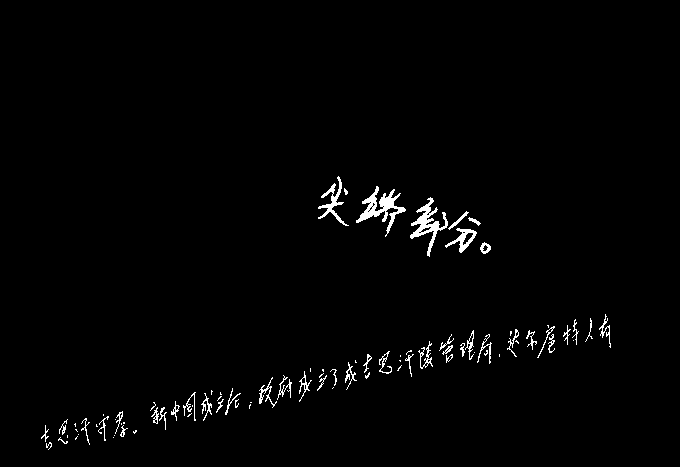 尖端部分。
吉思汗守孝。新中国成立后，政府成立了成吉思汗陵管理局，达尔扈特人有